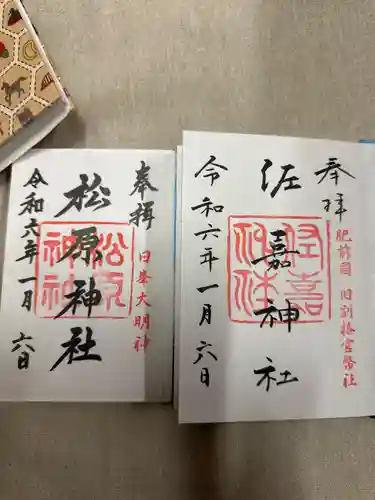 奉拝
肥前國 旧別格官幣社
佐嘉神社
佐嘉
神社
令和六年一月六日
奉拝
日峯大明神
松原神社
松原
神社
令和六年一月六日